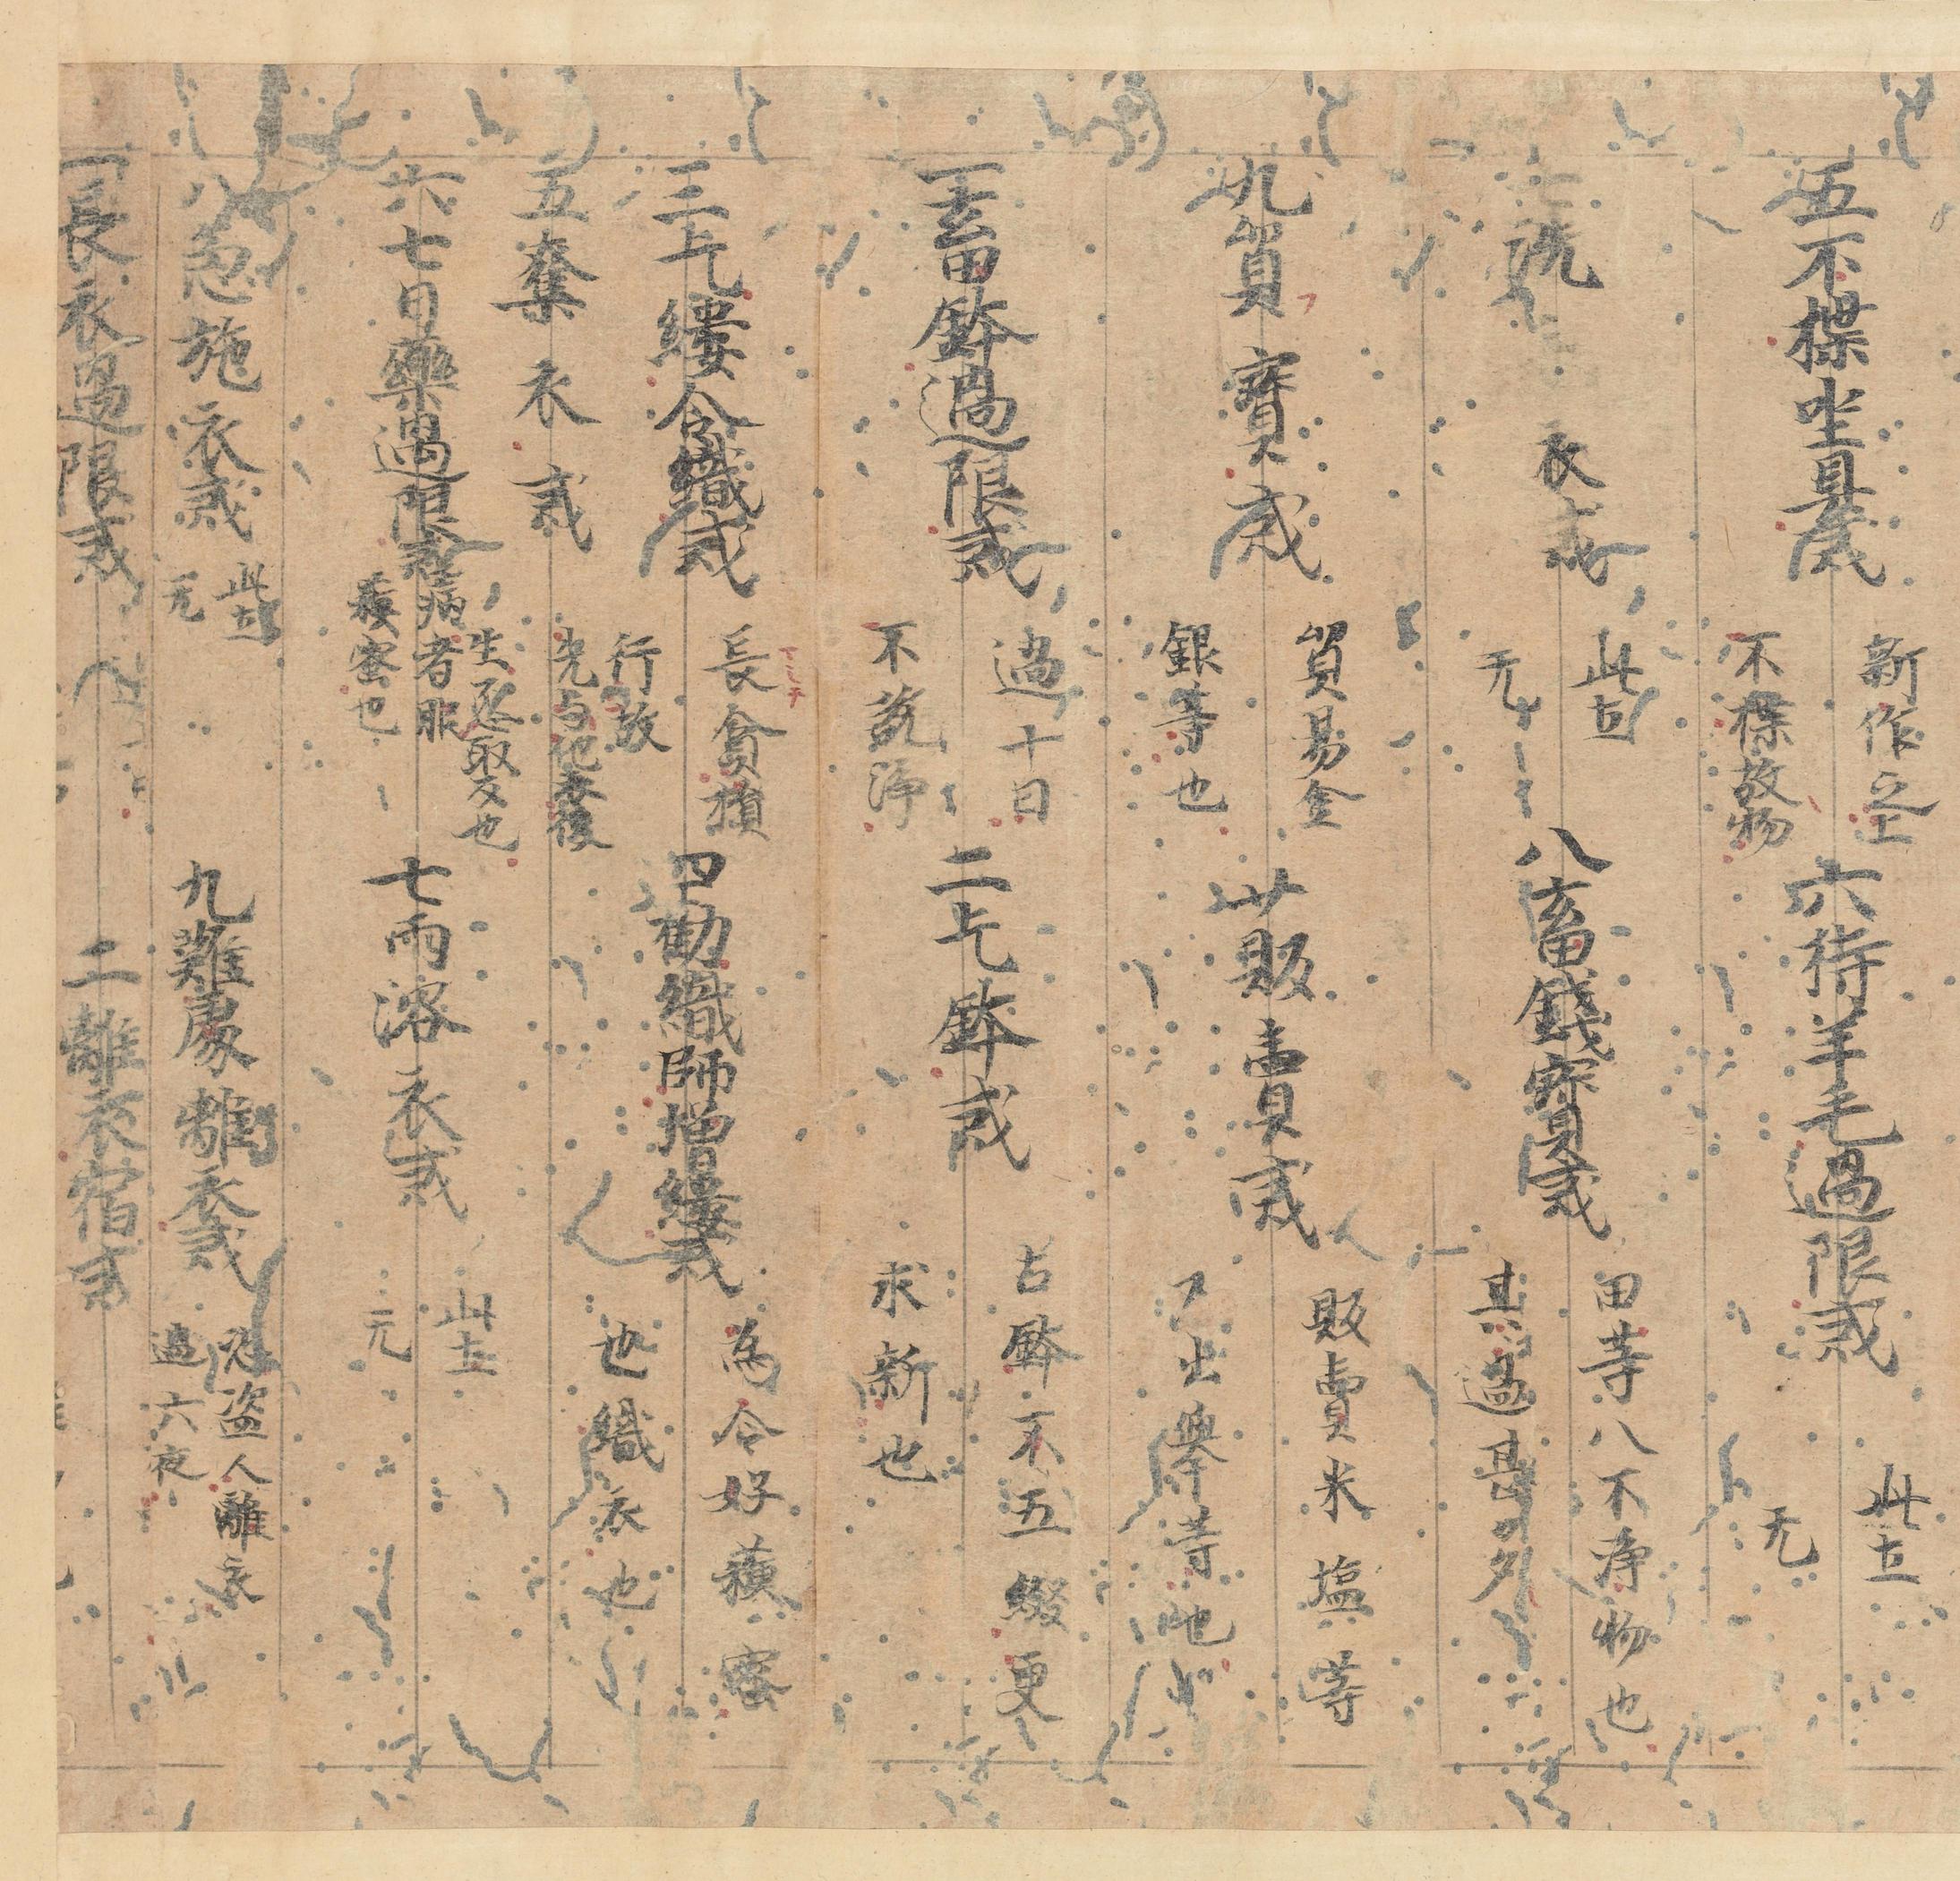 五不揲坐具戒
新作之上
不揲故物
六持羊毛過限戒
此土
无
七浣衣戒
此土
无
八畜錢寶戒
田等八不淨物也
其過甚多
九貿寶戒
貿易金
銀等也
十販賣戒
販賣米塩等
出擧等也
一畜鉢過限戒
過十日
不說淨
二乞鉢戒
古鉢不五綴更
求新也
三乞縷令織戒
長貪損
行故
四勸織師増縷戒
為令好穢蜜
也織衣也
五奪衣戒
先与他衣後
生忿取又也
六七日藥過限戒
病者服
蜜也
七雨浴衣戒
此土
无
八急施衣戒
此土
无
九難處離衣戒
恐盗人離衣
過六夜
一長衣過限戒
二離衣宿戒